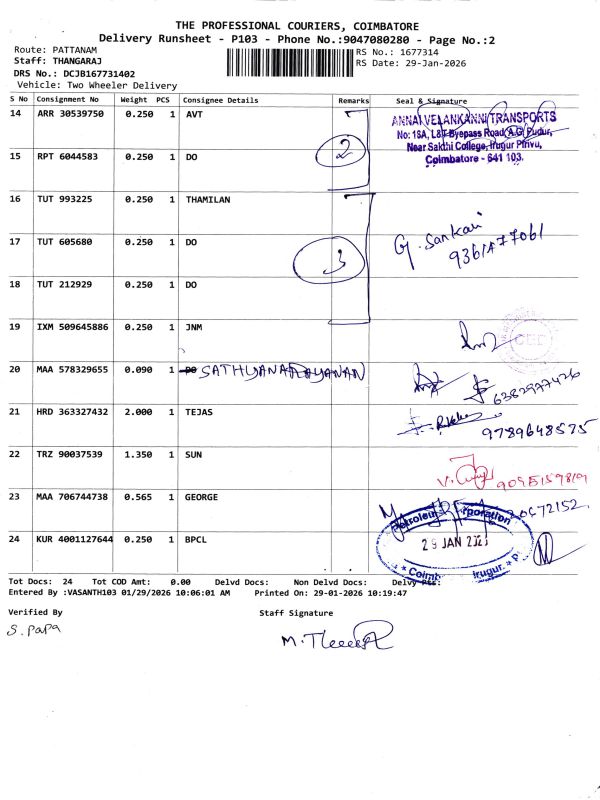 THE PROFESSIONAL COURIERS, COIMBATORE
Delivery Runsheet - P103 - Phone No.:9047080280 - Page No.:2
Route: PATTANAM
RS No.: 1677314
Staff: THANGARAJ
RS Date: 29-Jan-2026
DRS No.: DCJB167731402
Vehicle: Two Wheeler Delivery
S No Consignment No Weight PCS Consignee Details Remarks Seal & Signature
14 ARR 30539750 0.250 1 AVT
ANNAI VELANKANNI TRANSPORTS
No: 18A, L&T Byepass Road, A.G. Pudur,
Near Sakthi College, Irugur Pirivu,
Coimbatore - 641 103.
15 RPT 6044583 0.250 1 DO 2
16 TUT 993225 0.250 1 THAMILAN
17 TUT 605680 0.250 1 DO 3 G. Sankari
9361477061
18 TUT 212929 0.250 1 DO
19 IXM 509645886 0.250 1 JNM
20 MAA 578329655 0.090 1 DO SATHYANARAYANAN
6382977426
21 HRD 363327432 2.000 1 TEJAS
9789648575
22 TRZ 90037539 1.350 1 SUN
23 MAA 706744738 0.565 1 GEORGE
24 KUR 4001127644 0.250 1 BPCL
29 JAN 202
Irugur
Tot Docs: 24 Tot COD Amt: 0.00 Delvd Docs: Non Delvd Docs: Delvy
Entered By :VASANTH103 01/29/2026 10:06:01 AM Printed On: 29-01-2026 10:19:47
Verified By Staff Signature
S. Papa